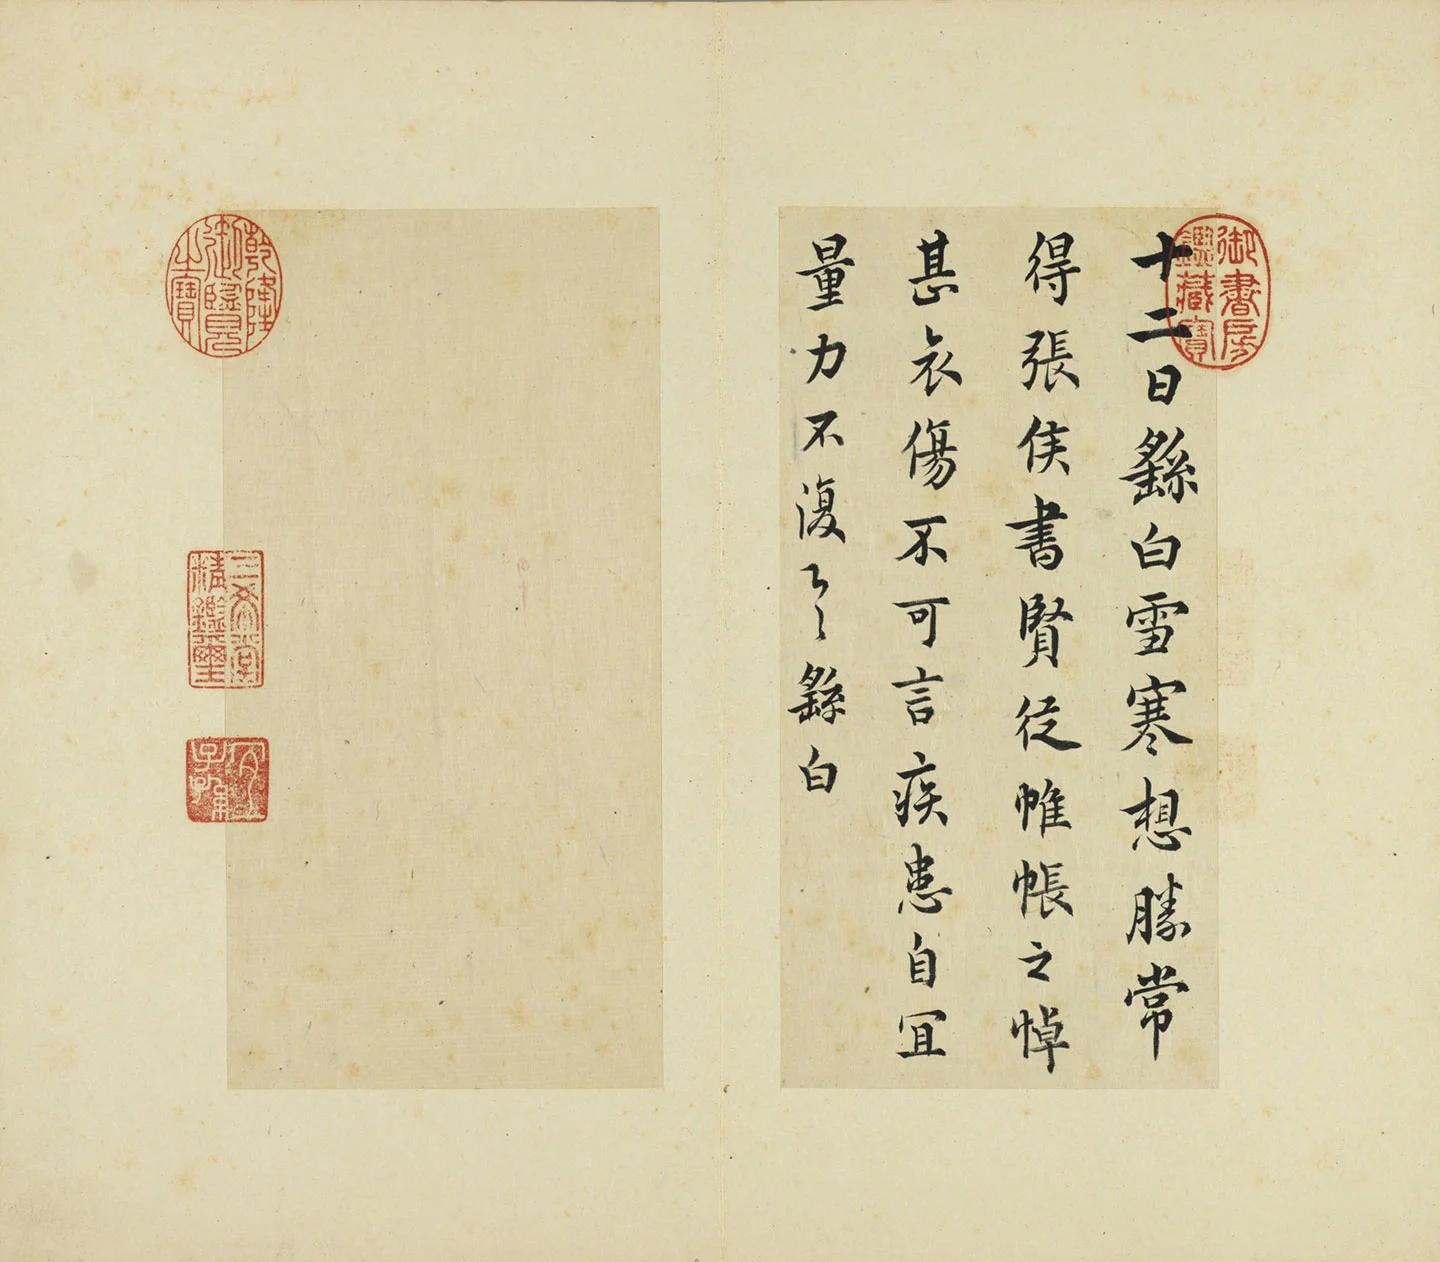 御書房鑑藏寶
十二日繇白雪寒想勝常
得張侯書賢從帷帳之悼
甚哀傷不可言疾患自宜
量力不復繇白
乾隆御覽之寶
三希堂精鑑璽
宜子孫